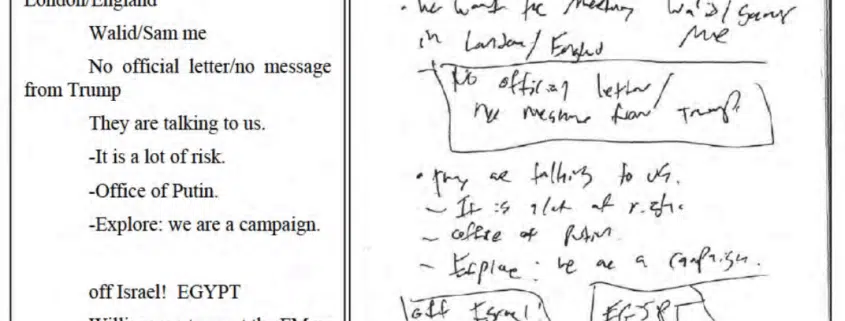 London/England
Walid/Sam me
No official letter/no message
from Trump
They are talking to us.
-It is a lot of risk.
-Office of Putin.
-Explore: we are a campaign.
off Israel! EGYPT
in London/ England
me
No official letter/
no message from Trump
• they are talking to us.
- It is a lot of risk
- office of Putin.
- Explore: we are a campaign.
off Israel! EGYPT